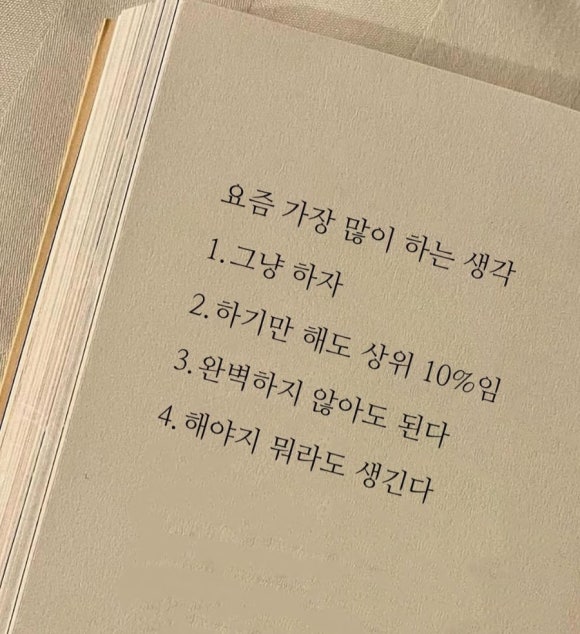 요즘 가장 많이 하는 생각
1. 그냥 하자
2. 하기만 해도 상위 10%임
3. 완벽하지 않아도 된다
4. 해야지 뭐라도 생긴다